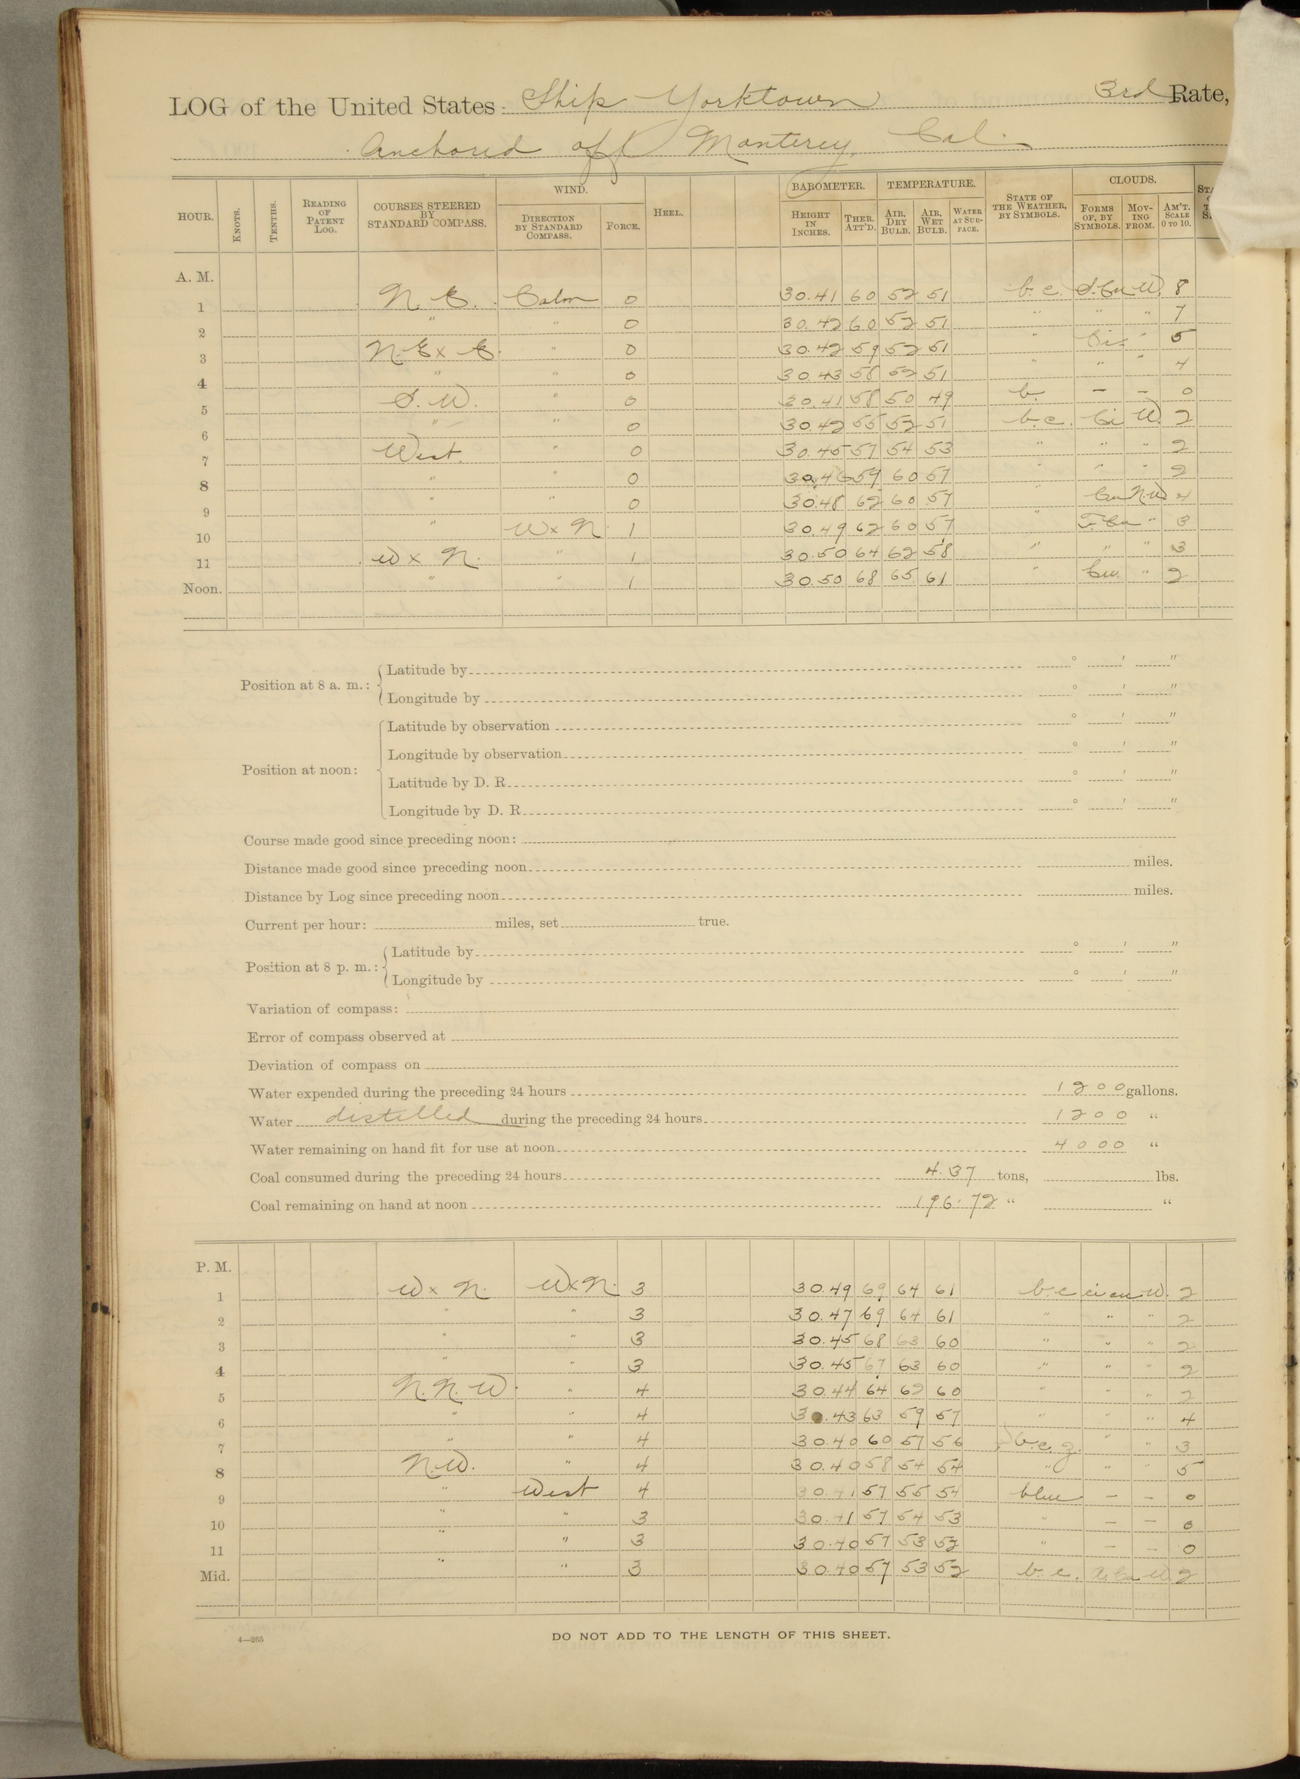 LOG of the United States Ship Yorktown 3rd Rate,
Anchored off Monterey, Cal.
HOUR. KNOTS. TENTHS. READING OF PATENT LOG. COURSES STEERED BY STANDARD COMPASS. WIND. DIRECTION BY STANDARD COMPASS. FORCE. HEEL. BAROMETER. HEIGHT IN INCHES. THER. ATT'D. TEMPERATURE. AIR, DRY BULB. AIR, WET BULB. WATER AT SURFACE. STATE OF THE WEATHER, BY SYMBOLS. CLOUDS. FORMS OF, BY SYMBOLS. MOVING FROM. AM'T. SCALE 0 TO 10.
A. M.
1 N.E. Calm 0 30.41 60 52 51 b.c. S.Cu W. 8
2 " " 0 30.42 60 52 51 " " " 7
3 N.E x E. " 0 30.42 59 52 51 " " 5
4 " " 0 30.43 58 52 51 " " " 4
5 S.W. " 0 30.41 58 50 49 b. — — 0
6 " " 0 30.42 55 52 51 b.c. Ci W. 2
7 West. " 0 30.45 57 54 53 " " " 2
8 " " 0 30.46 59 60 57 " " " 2
9 " " 0 30.48 62 60 57 " Cu N.W 4
10 " W x N. 1 30.49 62 60 57 " " 3
11 W x N. " 1 30.50 64 62 58 " " " 3
Noon. " " 1 30.50 68 65 61 " Cu. " 2
Position at 8 a. m.: Latitude by ° ′ ″
Longitude by ° ′ ″
Position at noon: Latitude by observation ° ′ ″
Longitude by observation ° ′ ″
Latitude by D. R. ° ′ ″
Longitude by D. R. ° ′ ″
Course made good since preceding noon:
Distance made good since preceding noon miles.
Distance by Log since preceding noon miles.
Current per hour: miles, set true.
Position at 8 p. m.: Latitude by ° ′ ″
Longitude by ° ′ ″
Variation of compass:
Error of compass observed at
Deviation of compass on
Water expended during the preceding 24 hours 1200 gallons.
Water distilled during the preceding 24 hours 1200 "
Water remaining on hand fit for use at noon 4000 "
Coal consumed during the preceding 24 hours 4.37 tons, lbs.
Coal remaining on hand at noon 196.72 " "
P. M.
1 W x N. W x N. 3 30.49 69 64 61 b c ci cu W. 2
2 " " 3 30.47 69 64 61 " " " 2
3 " " 3 30.45 68 63 60 " " " 2
4 " " 3 30.45 67 63 60 " " " 2
5 N.N.W. " 4 30.44 64 62 60 " " " 2
6 " " 4 30.43 63 59 57 " " " 4
7 " " 4 30.40 60 57 56 b.c.g. " " 3
8 N.W. " 4 30.40 58 54 54 " " " 5
9 " West 4 30.41 57 55 54 blue — — 0
10 " " 3 30.41 57 54 53 " — — 0
11 " " 3 30.40 57 53 52 " — — 0
Mid. " " 3 30.40 57 53 52 b.c. W 2
4—265
DO NOT ADD TO THE LENGTH OF THIS SHEET.